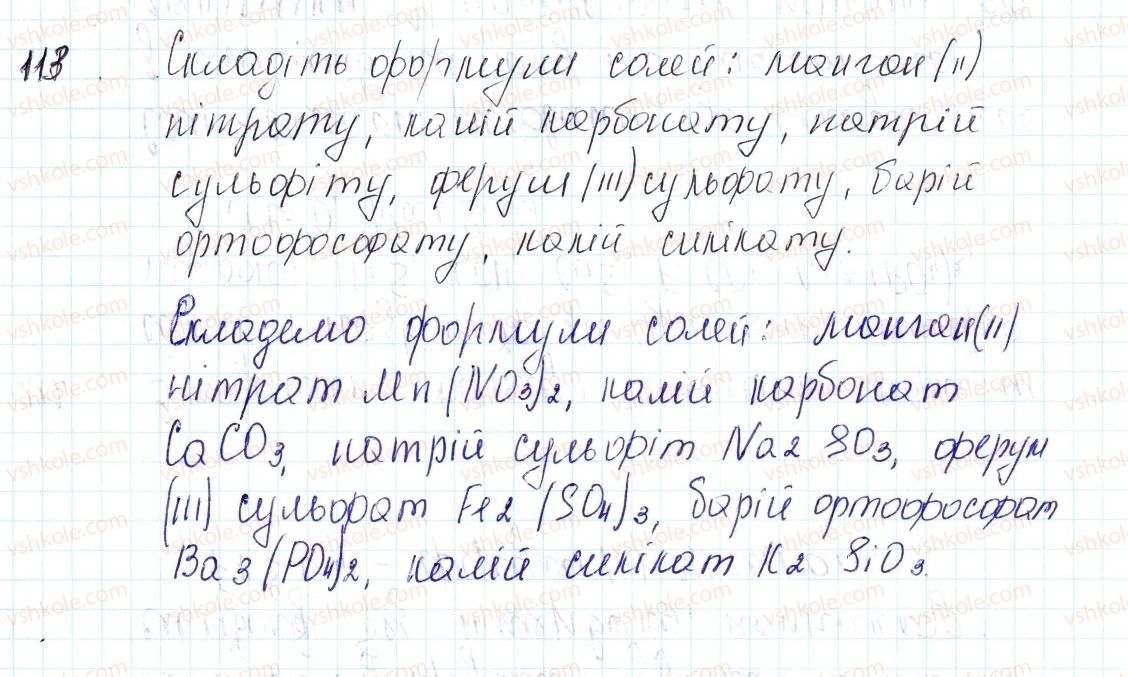 113. Складіть формули солей: манган (II)
нітрату, калій карбонату, натрій
сульфіту, ферум (III) сульфату, барій
ортофосфату, калій силікату.
Складемо формули солей: манган (II)
нітрат Mn(NO3)2, калій карбонат
CaCO3, натрій сульфіт Na2SO3, ферум
(III) сульфат Fe2(SO4)3, барій ортофосфат
Ba3(PO4)2, калій силікат K2SiO3.